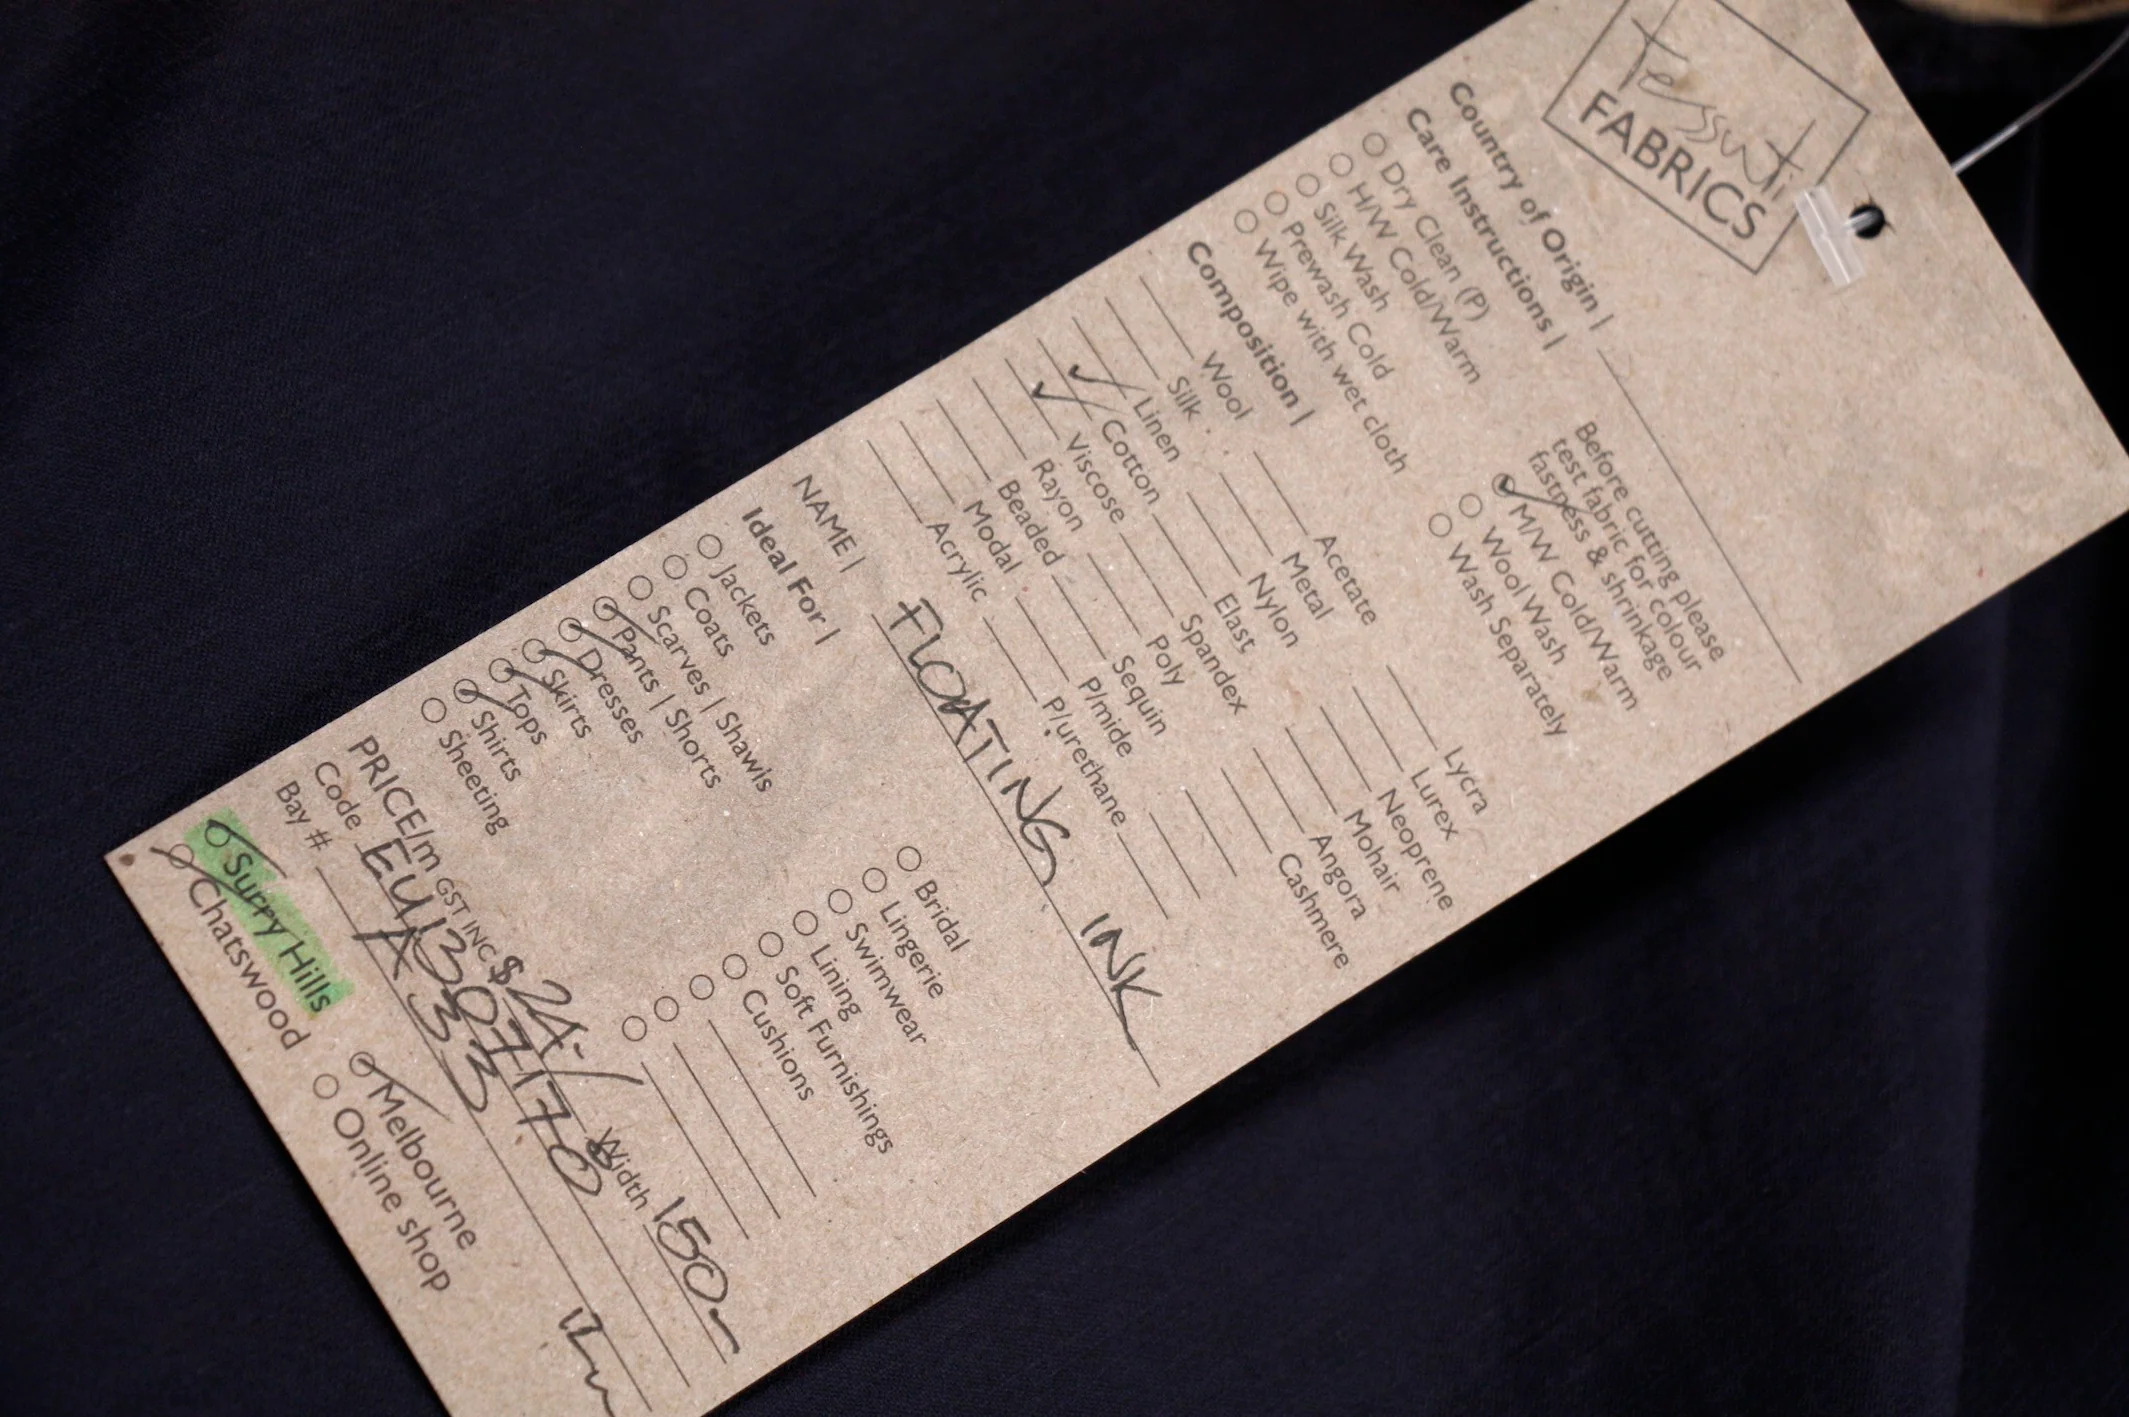 Tessuti
FABRICS
Country of Origin |
Care Instructions |
Before cutting please
test fabric for colour
fastness & shrinkage
Dry Clean (P)
H/W Cold/Warm
Silk Wash
Prewash Cold
Wipe with wet cloth
M/W Cold/Warm
Wool Wash
Wash Separately
Composition |
Wool Acetate Lycra
Silk Metal Lurex
Linen Nylon Neoprene
Cotton Elast Mohair
Viscose Spandex Angora
Rayon Poly Cashmere
Beaded Sequin
Modal P/mide
Acrylic P/urethane
NAME | FLOATING INK
Ideal For |
Jackets Bridal
Coats Lingerie
Scarves | Shawls Swimwear
Pants | Shorts Lining
Dresses Soft Furnishings
Skirts Cushions
Tops
Shirts
Sheeting
PRICE/m GST INC $ Width 150
Code EY1307170
Bay # A33
Surry Hills Melbourne
Chatswood Online shop